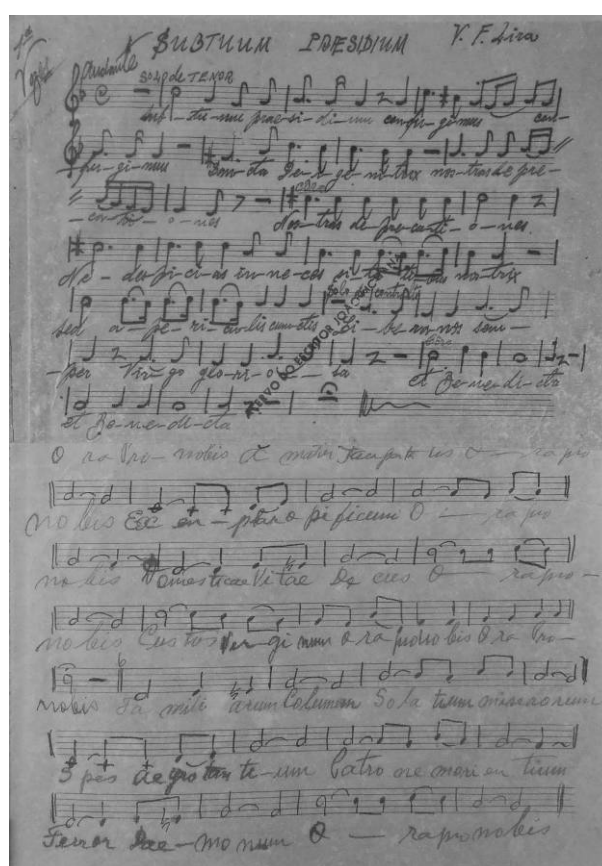 1ª Vozes
SUBTUUM PRAESIDIUM V. F. Lira
Andante
SOLO de TENOR
Sub-tu-um prae-si-di-um con-fu-gi-mus con-
fu-gi-mus San-cta De-i ge-ni-trix nos-tras de pre-
ca-ti-o-nes Nos-tras de pre-ca-ti-o-nes.
Ne-des-pi-ci-as in-ne-ces si-ta-ti-bus nos-tris
Solo de contralto
sed a-pe-ri-cu-lis cunctis li-be-ra nos sem-
-per Vir-go glo-ri-o-sa et Be-ne-di-cta
et Be-ne-di-cta
ACERVO DO ESCRITOR
O ra Pro-nobis
nobis O - ra pro
nobis Domesticae Vitae De cus O - ra pro-
nobis Custos Vir-gi num O ra pro no bis O ra Pro-
nobis Fa mili arum Columen Sola tium miserorum
S pes aegrotan ti-um Patro ne mori en tium
Terror Dae-mo num O - ra pro nobis